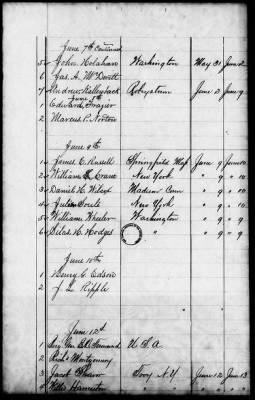 June 7th Continued
5 John Holahan Washington May 31 June 2
6 Jas. A. McDevitt
7 Andrew Kalleyback Robystown June 2 June 9
June 8th
1 Edward Frazier
2 Marcus P. Norton
June 9th
1 James C. Russell Springfield Mass June 9 June 10
2 William E. Crane New York " 9 " 10
3 Daniel H. Wilcox Madison Conn " 9 " 10
4 Jules Soule New York " 9 " 10
5 William Wheeler Washington " 9 " 9
6 Silas H. Hodges " " 9 " 9
June 10th
1 Henry G. Edson
2 J. L. Ripple
June 12th
1 Genl. E. D. Townsend U S A
2 Richd Montgomery
3 Jacob Troy N.Y June 12 June 13
4